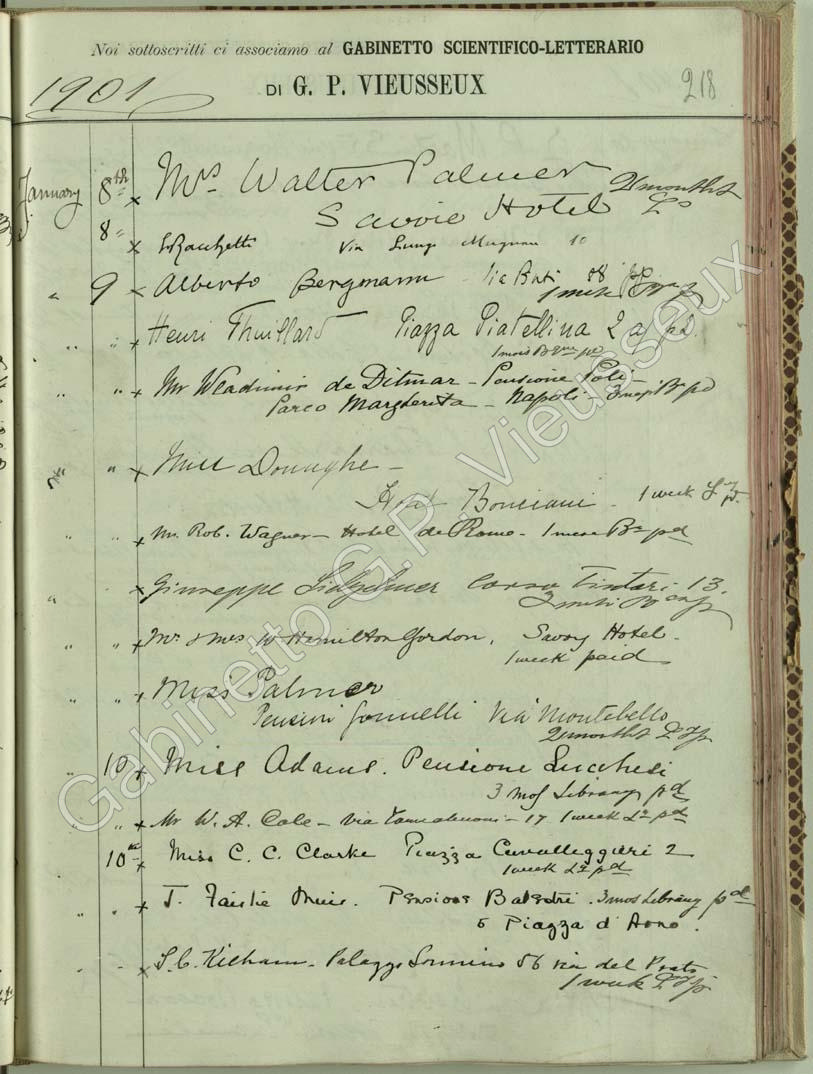 Noi sottoscritti ci associamo al GABINETTO SCIENTIFICO-LETTERARIO
DI G. P. VIEUSSEUX
1901
218
January 8th × Mrs Walter Palmer 2 months
Savoie Hotel L
8 × Via Lungo Mugnone 10
" 9 × Alberto Bergmann 
1 mese
" " × Henri Thuillard Piazza Piatellina 2 a p2.
1 mois B
" " × Mr Wladimir de Ditmar - Pensione Poli -
Parco Margherita - Napoli - 3 mesi B pd
" " × Miss Donaghe -
Bonciani - 1 week
" " × Mr. Rob. Wagner - Hotel de Rome - 1 mese B pd
" × Giuseppe Corso Tintori 13.
2 mesi
" " × Mr & Mrs W Hamilton Gordon, Savoy Hotel -
1 week paid
" " × Miss Palmer
Via Montebello
2 months
" 10 × Miss Adams. Pensione Lucchesi
3 mos Library pd
" " × Mr W. A. Cole - Via - 17 1 week pd
10th × Miss C. C. Clarke Piazza Cavalleggieri 2
1 week pd
" " × J. Fairlie Muir. Pensione Balestri. 3 mos Library pd
5 Piazza d'Arno.
" × S. C. Kilham - Palazzo Sonnino 56 via del Prato
1 week
Gabinetto G.P. Vieusseux